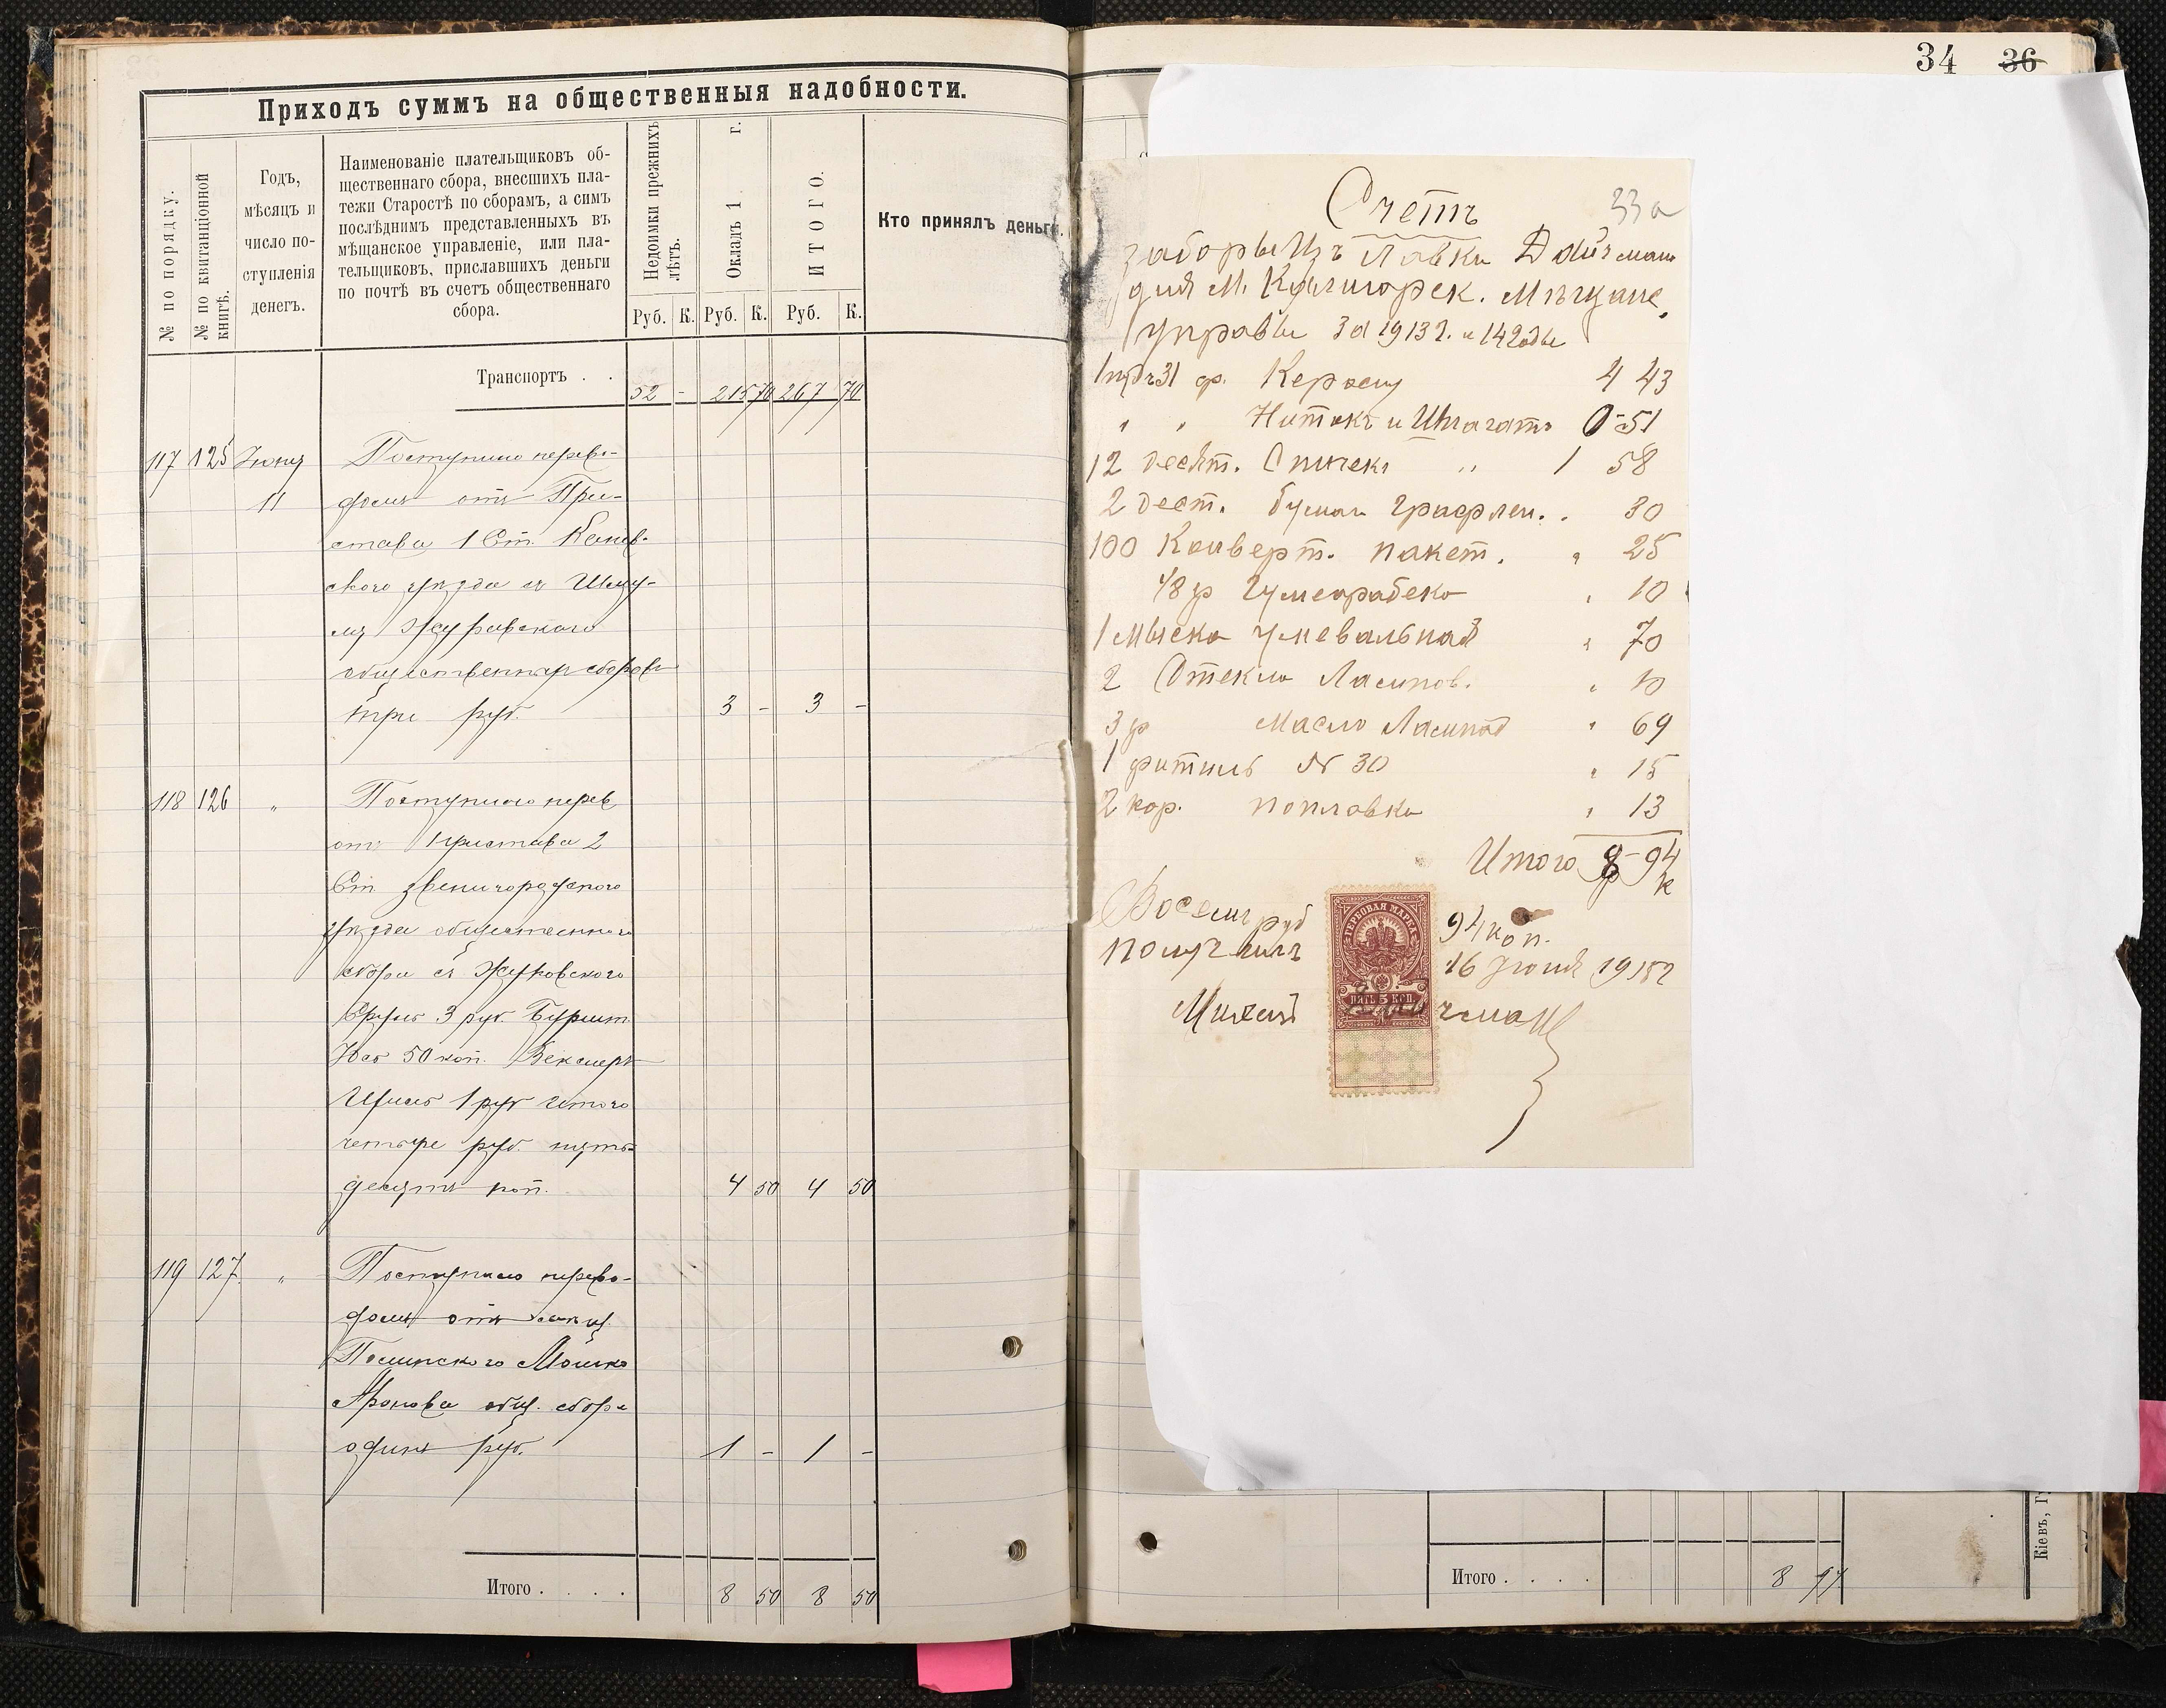 Приходъ суммъ на общественныя надобности.
№ по порядку.
№ по квитанціонной книгѣ.
Годъ,
мѣсяцъ и
число по-
ступленія
денегъ.
Наименованіе плательщиковъ об-
щественнаго сбора, внесшихъ пла-
тежи Старостѣ по сборамъ, а симъ
послѣднимъ представленныхъ въ
мѣщанское управленіе, или пла-
тельщиковъ, приславшихъ деньги
по почтѣ въ счетъ общественнаго
сбора.
Недоимки прежнихъ лѣтъ.
Окладъ 1 г.
ИТОГО.
Кто принялъ деньги.
Руб. К. Руб. К. Руб. К.
Транспортъ . . 52 - 215 70 267 70
117 125 Іюня Поступило перево-
11 домъ отъ При-
става 1 Ст. Канев-
ского уѣзда съ Шму-
ля Журавского
общественныхъ сборовъ
три руб. 3 - 3 -
118 126 „ Поступило перев
отъ Пристава 2
Ст Звенигородского
уѣзда общественного
сбора съ Жуковского
Сруль 3 руб.
Іос 50 коп.
1 руб итого
четыре руб. пять-
десятъ коп. 4 50 4 50
119 127 „ Поступило перево-
домъ отъ
Мошко
Аронова общ. сбора
одинъ руб. 1 - 1 -
Итого . . . . 8 50 8 50
34 36
33а
Счетъ
заборы Изъ Лавки Дайчман
для М. Калигорск. Мѣщане.
управы За 1913 г. и 14 годы
1 пудъ 31 ф. Керосину 4 43
„ „ Нитокъ и Шпагатъ 0-51
12 десят. Спичекъ „ 1 58
2 дест. бумаги Графлен. . 30
100 Конверт. пакет. „ 25
1/8 ф Гумеарабеко „ 10
1 Мыска умевальная „ 70
2 Стекла Лампов. „ 10
3 ф Масло Лампад „ 69
1 фитиль № 30 „ 15
2 кор. поплавки „ 13
Итого 8 р-94 к
Восемъ руб 94 коп.
получилъ 16 Іюня 191
ГЕРБОВАЯ МАРКА
ПЯТЬ 5 КОП.
Дайчман
Итого . . . . 8 94
Кіевъ, Г